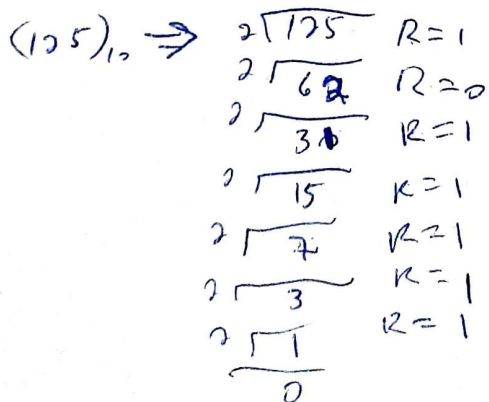 (125)₁₀ ⇒ 2 125 R = 1
2 62 R = 0
2 31 R = 1
2 15 R = 1
2 7 R = 1
2 3 R = 1
2 1 R = 1
0